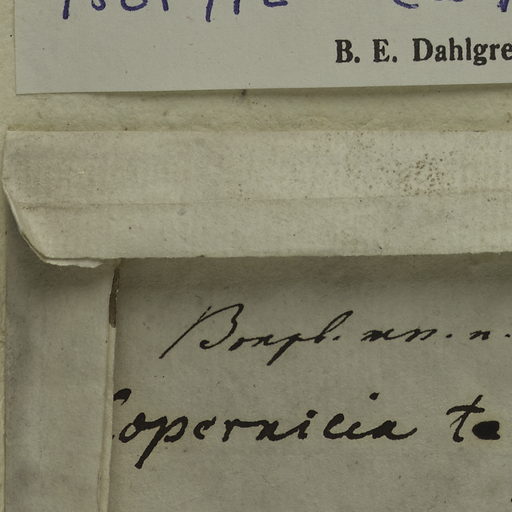 B. E. Dahlgre
Bonpl. mss. n.
Copernicia te